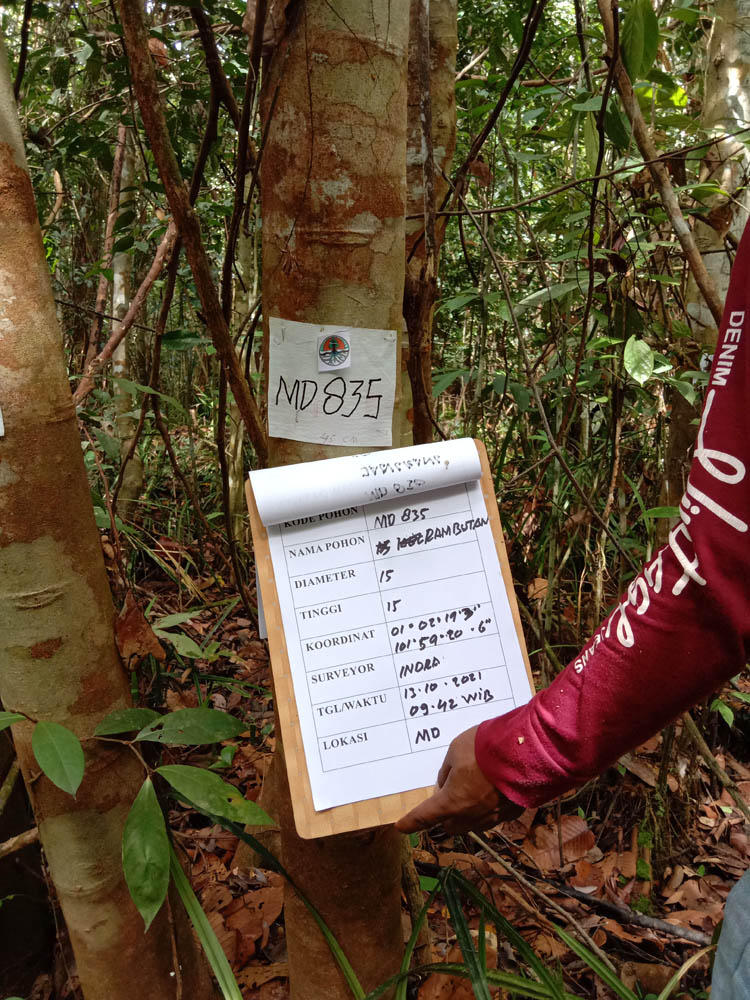 MD 835
45 CM
MD 835
KODE POHON MD 835
NAMA POHON RAMBUTAN
DIAMETER 15
TINGGI 15
KOORDINAT 01° 02' 19 3"
101° 59' 20 . 6"
SURVEYOR INDRA
TGL/WAKTU 13.10.2021
09:42 WIB
LOKASI MD
DENIM
JEANS